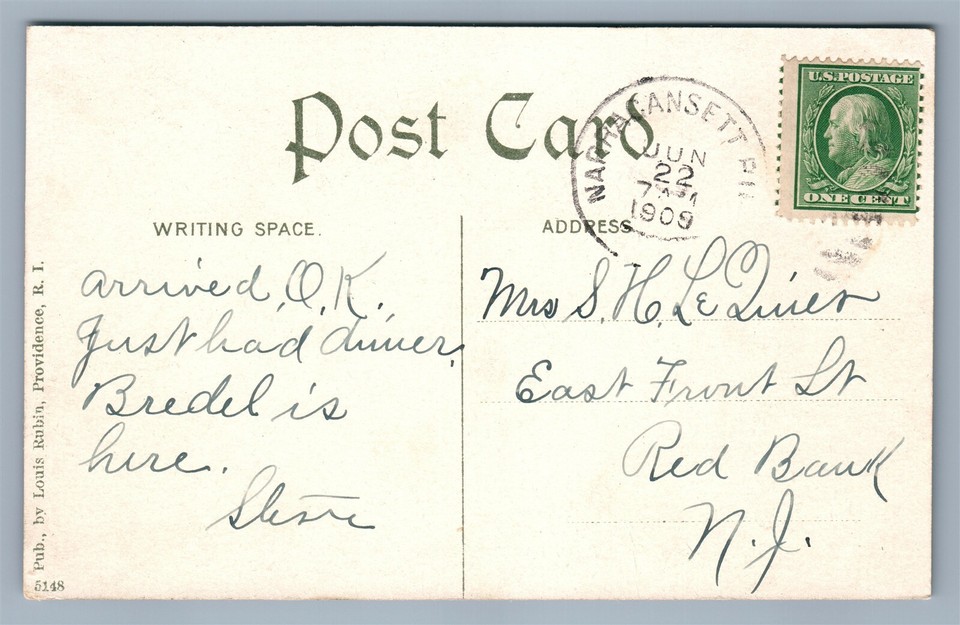 Post Card
U.S. POSTAGE
ONE CENT
NARRAGANSETT PI
JUN
22
7
1909
WRITING SPACE.
arrived, O.K.
Just had dinner.
Bredel is
here.
Steve
ADDRESS
Mrs S. H. Le Quier
East Front St
Red Bank
N.J.
Pub., by Louis Rubin, Providence, R. I.
5148